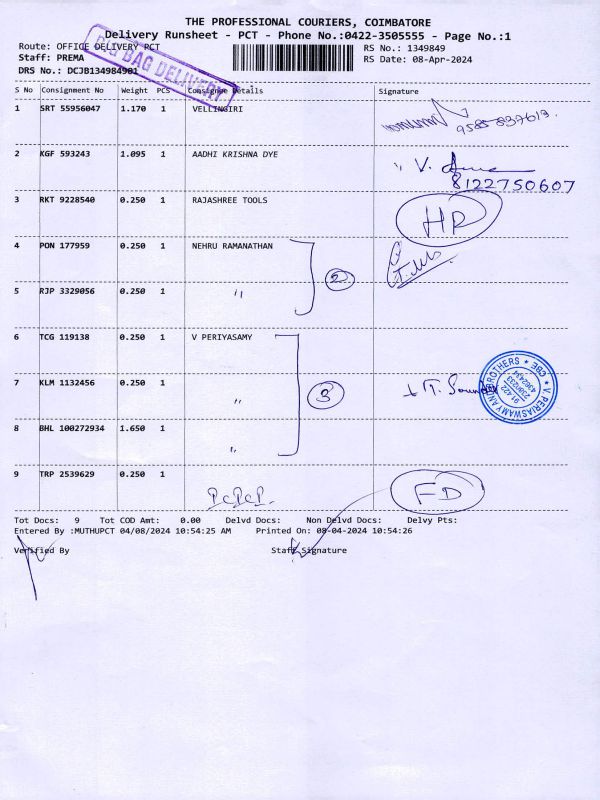 THE PROFESSIONAL COURIERS, COIMBATORE
Delivery Runsheet - PCT - Phone No.:0422-3505555 - Page No.:1
Route: OFFICE DELIVERY PCT RS No.: 1349849
Staff: PREMA RS Date: 08-Apr-2024
DRS No.: DCJB134984901
BIG BAG DELIVERY
S No Consignment No Weight PCS Consignee Details Signature
1 SRT 55956047 1.170 1 VELLINGIRI
2 KGF 593243 1.095 1 AADHI KRISHNA DYE V.
8122750607
3 RKT 9228540 0.250 1 RAJASHREE TOOLS HD
4 PON 177959 0.250 1 NEHRU RAMANATHAN
2
5 RJP 3329056 0.250 1 "
6 TCG 119138 0.250 1 V PERIYASAMY
7 KLM 1132456 0.250 1 " 3
V. PERIASWAMY AND BROTHERS * CBE *
8 BHL 100272934 1.650 1 "
9 TRP 2539629 0.250 1 FD
PCPCP.
Tot Docs: 9 Tot COD Amt: 0.00 Delvd Docs: Non Delvd Docs: Delvy Pts:
Entered By :MUTHUPCT 04/08/2024 10:54:25 AM Printed On: 08-04-2024 10:54:26
Verified By Staff Signature